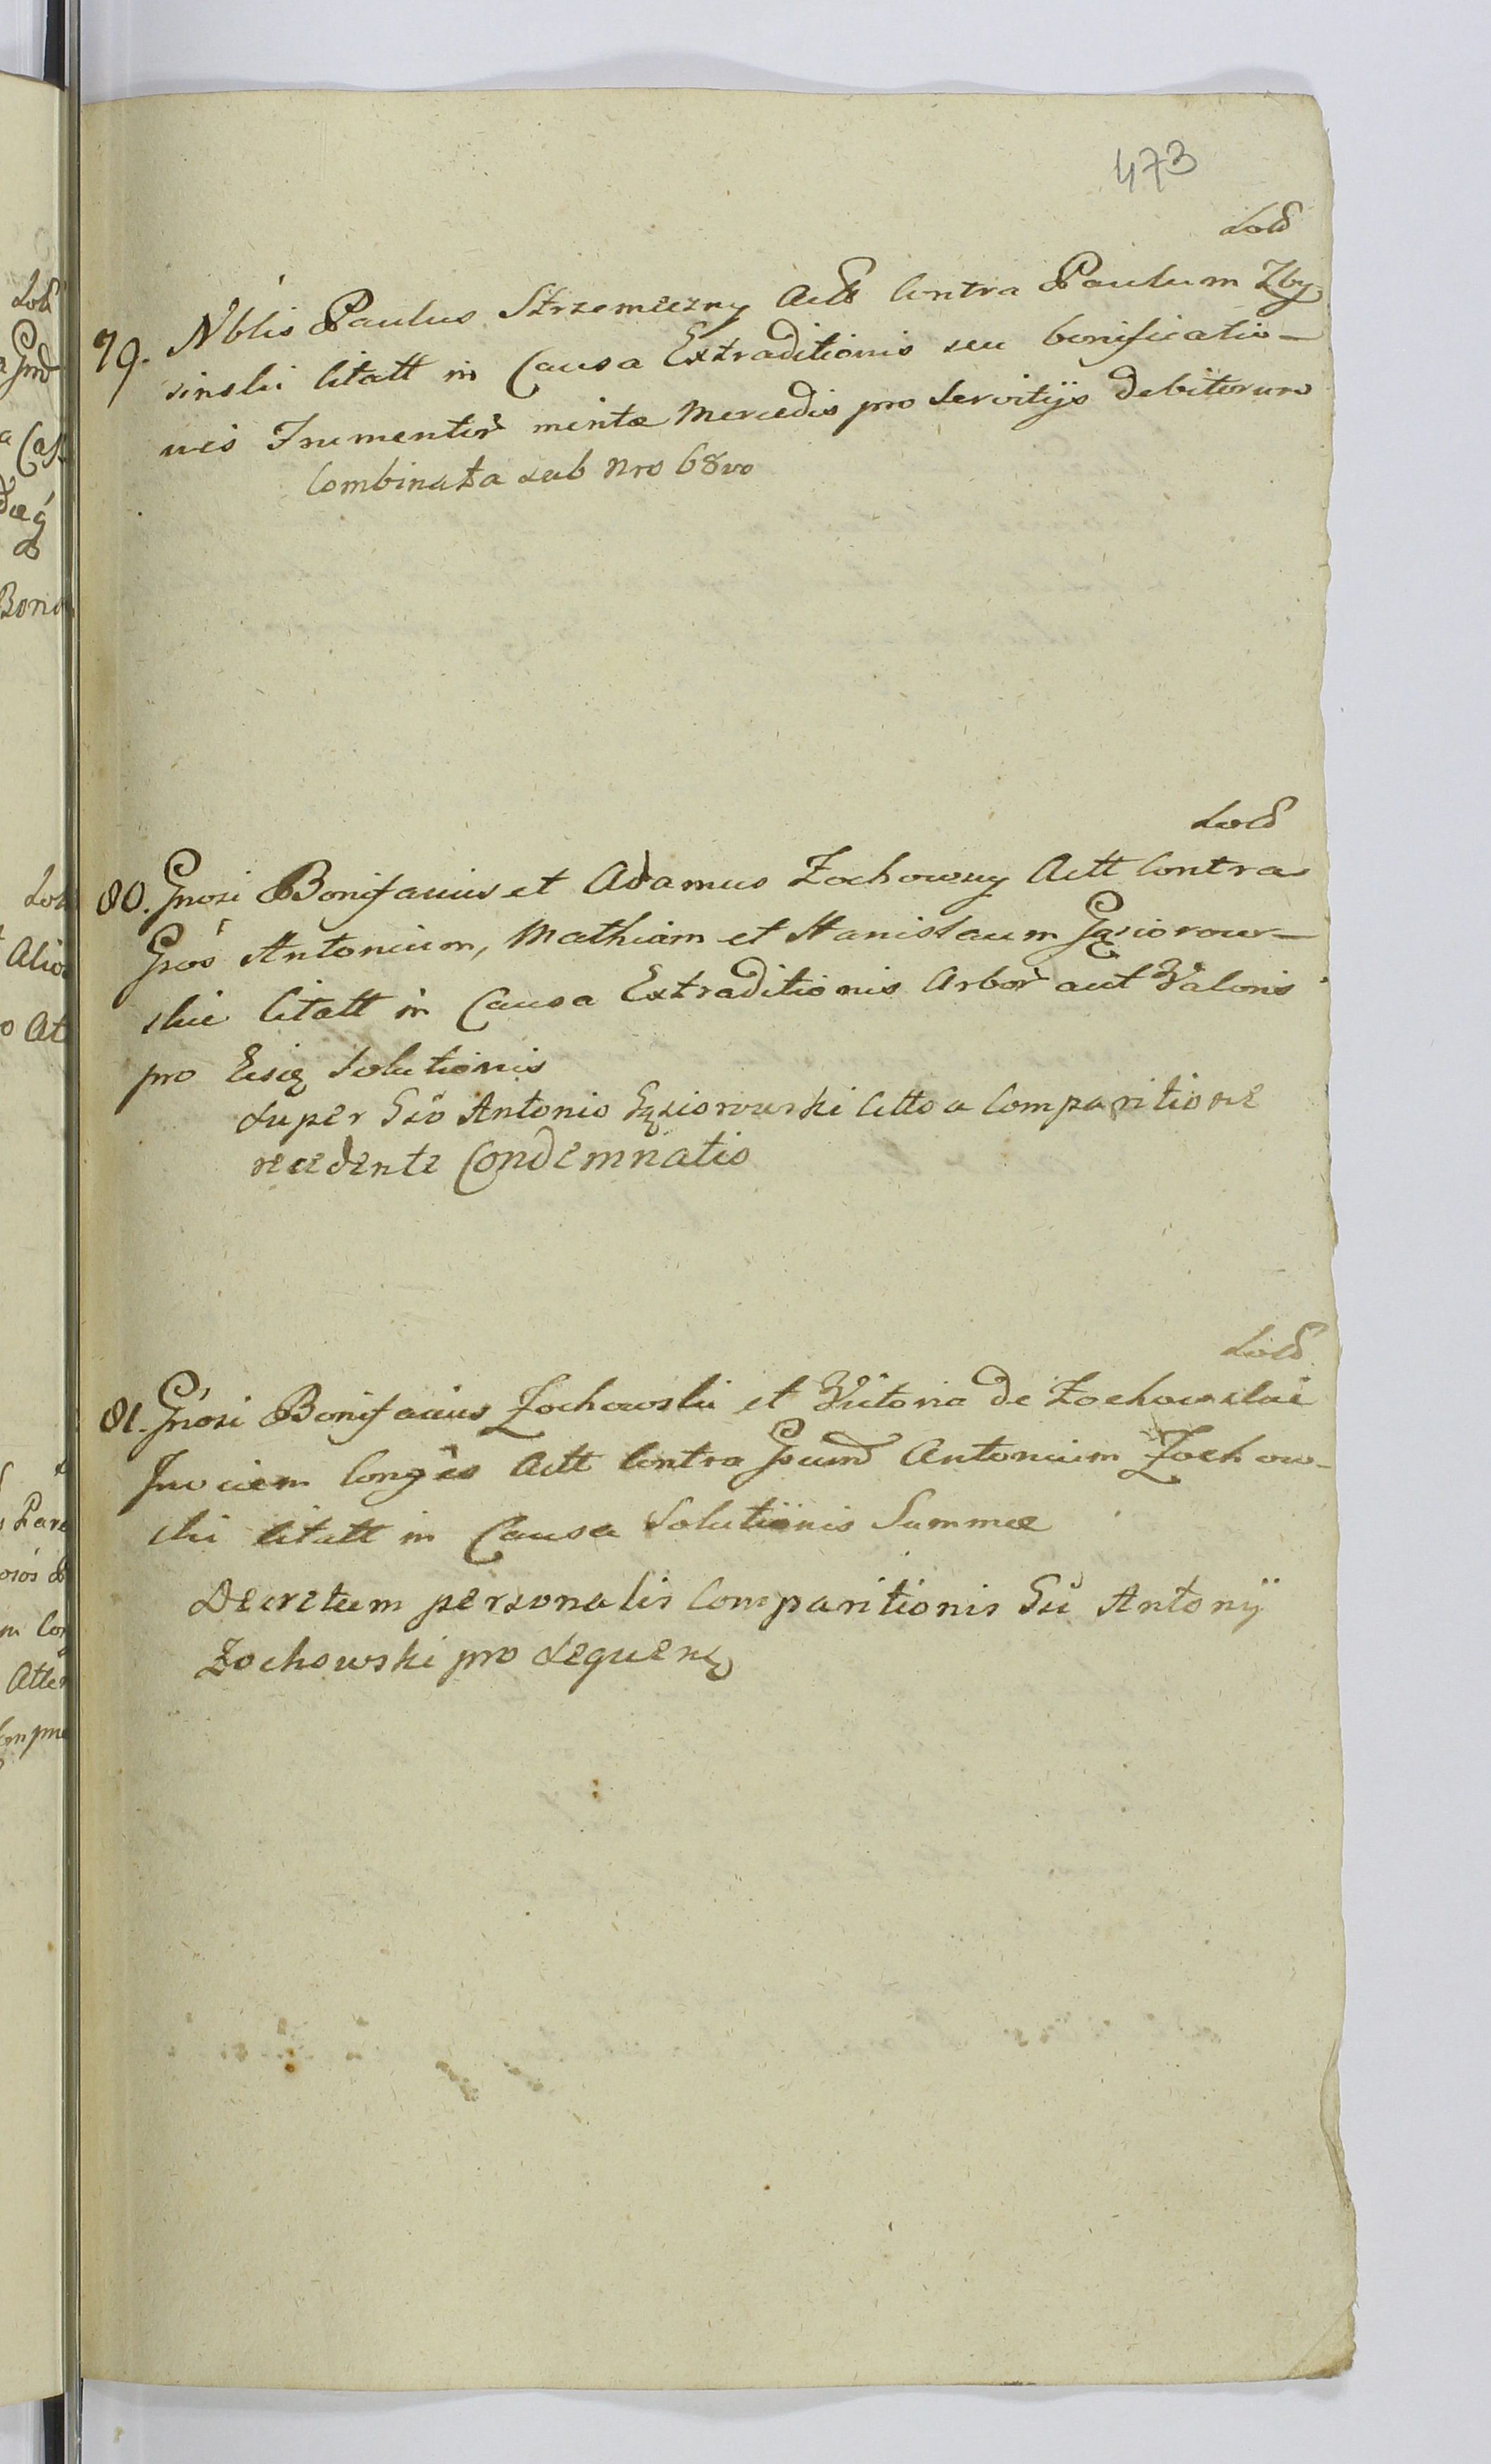 473
79. Nblis Paulus Strzemeczny Actt Contra Paulum Zby-
sinski Citatt in Causa Extraditionis seu bonificatio-
nis Frumentor mintae Mercedis pro Servitijs debitorum
Combinata sub Nro 68vo
80. Gnosi Bonifacius et Adamus Zochowscy Actt Contra
Gsos Antonium, Mathiam et Stanislaum Gąsiorow-
skie Citatt in Causa Extraditionis Arbor aut Valoris
pro Eisq Solutionis
Super Gso Antonio Gąsiorowski Citto a Comparitione
recedente Condemnatio
81. Gnosi Bonifacius Zochowski et Victoria de Zochowskie
Invicem Conges Actt Contra Gsum Antonium Zochow-
ski Citatt in Causa Solutionis Summae
Decretum personalis Comparitionis Gsi Antonij
Zochowski pro sequenq